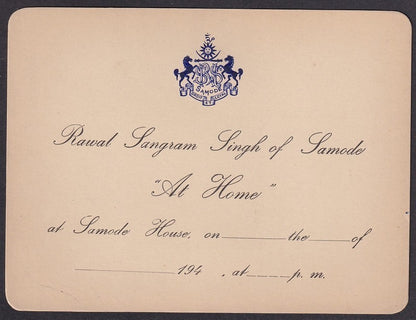 SAMODE
Rawal Sangram Singh of Samode
"At Home"
at Samode House, on______the____of
______194 , at____p. m.